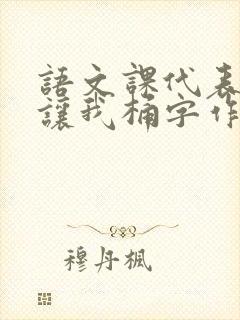 語文課代表
讓我桶字作
穆丹楓